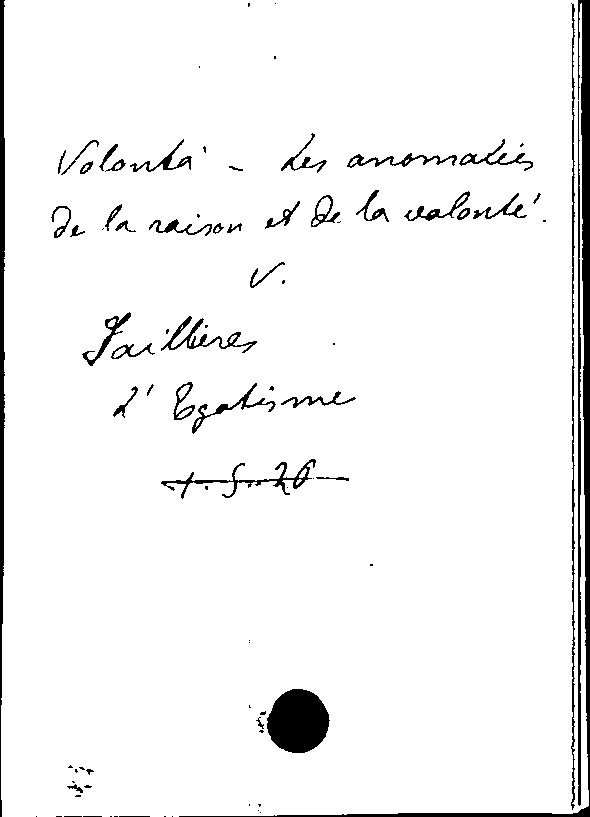 Volonté - Les anomalies
de la raison et de la volonté.
V.
Jaillières
L' Egotisme